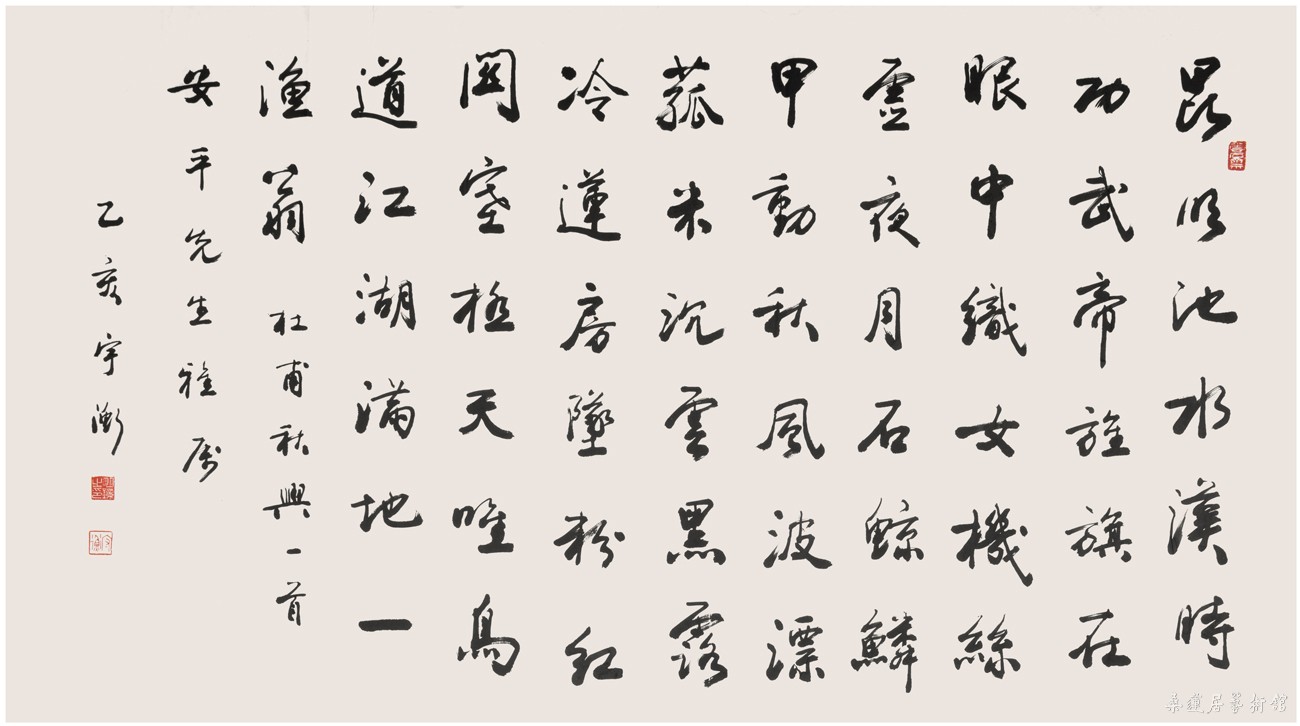 昆明池水漢時
功武帝旌旗在
眼中織女機絲
虛夜月石鯨鱗
甲動秋風波漂
菰米沉雲黑露
冷蓮房墜粉紅
關塞極天唯鳥
道江湖滿地一
漁翁 杜甫秋興一首
安平先生雅属
乙亥宇衡
桑蓮居藝術館